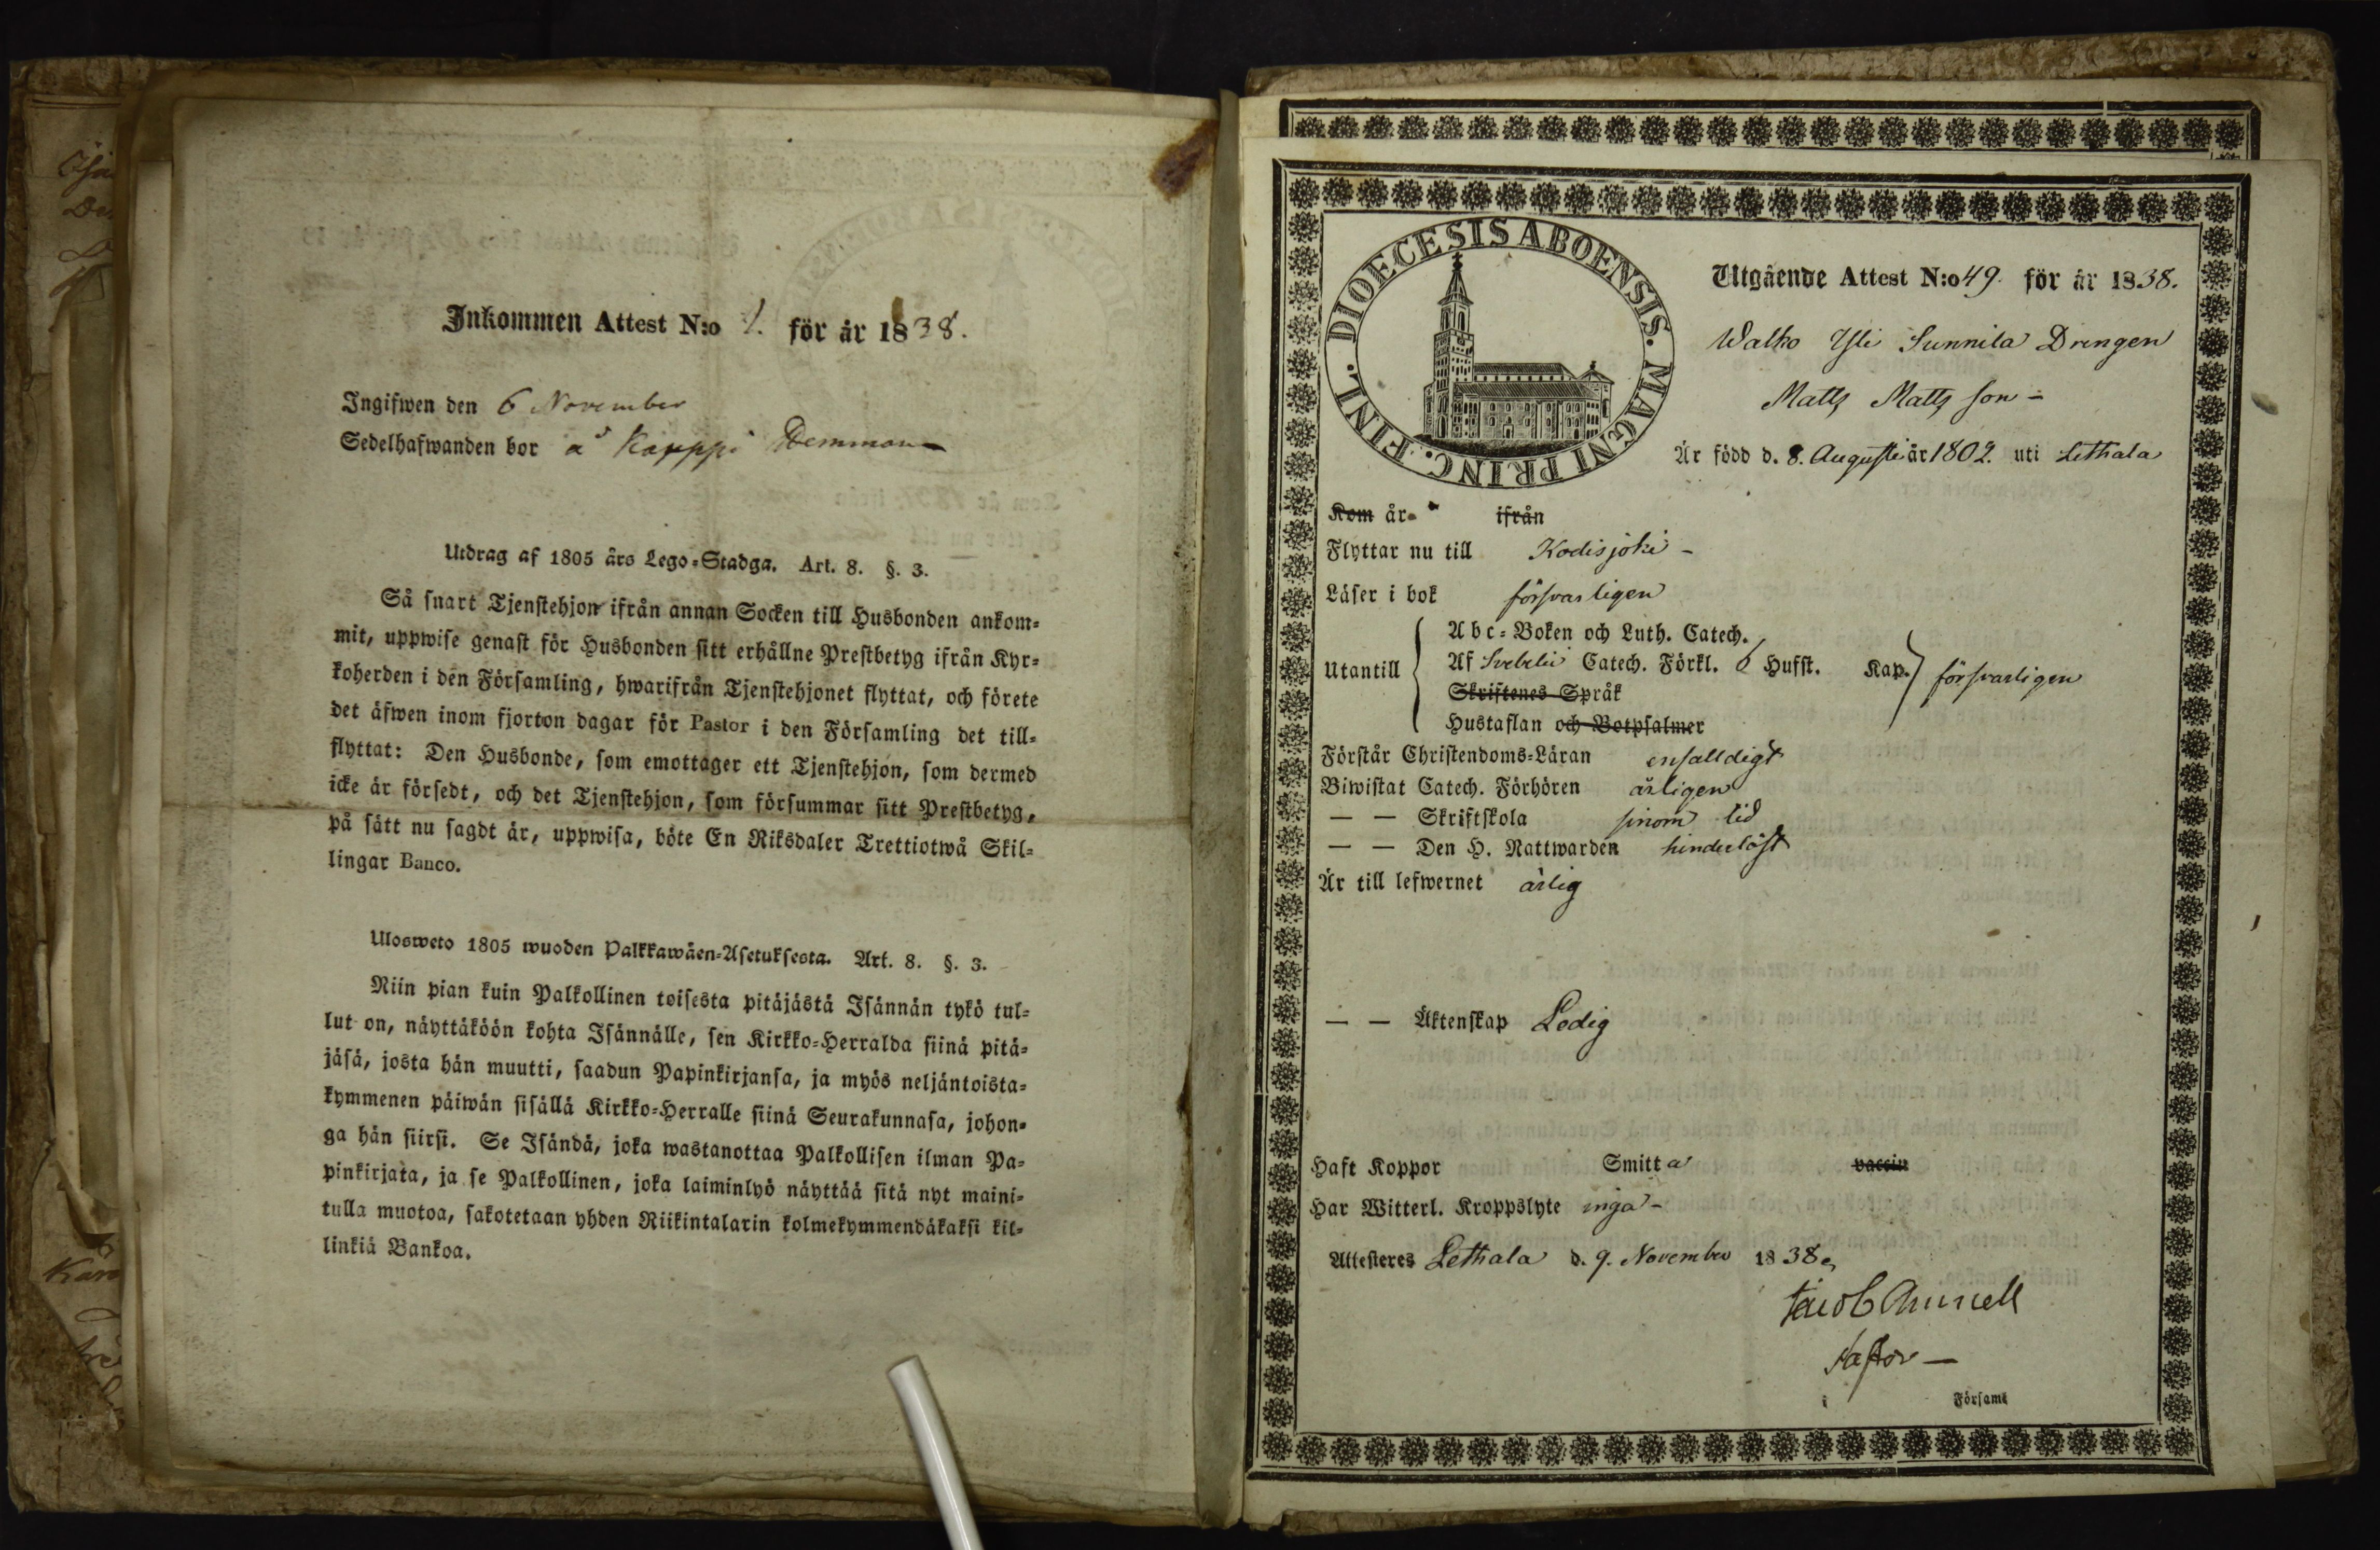 Inkommen Attest N:o 1. för år 1838.
Ingifwen den 6 November
Sedelhafwanden bor å Kapppi Hemman
Utdrag af 1805 års Lego-Stadga. Art. 8. §. 3.
Så snart Tjenstehjon ifrån annan Socken till Husbonden ankom-
mit, uppwise genast för Husbonden sitt erhållne Prestbetyg ifrån Kyr-
koherden i den Församling, hwarifrån Tjenstehjonet flyttat, och förete
det äfwen inom fjorton dagar för Pastor i den Församling det till-
flyttat: Den Husbonde, som emottager ett Tjenstehjon, som dermed
icke är försedt, och det Tjenstehjon, som försummar sitt Prestbetyg,
på sätt nu sagdt är, uppwisa, böte En Riksdaler Trettiotwå Skil-
lingar Banco.
Ulosweto 1805 wuoden Palkkawäen-Asetuksesta. Art. 8. §. 3.
Niin pian kuin Palkollinen toisesta pitäjästä Isännän tykö tul-
lut on, näyttäköön kohta Isännälle, sen Kirkko-Herralda siinä pitä-
jäsä, josta hän muutti, saadun Papinkirjansa, ja myös neljäntoista-
kymmenen päiwän sisällä Kirkko-Herralle siinä Seurakunnasa, johon-
ga hän siirsi. Se Isändä, joka wastanottaa Palkollisen ilman Pa-
pinkirjata, ja se Palkollinen, joka laiminlyö näyttää sitä nyt maini-
tulla muotoa, sakotetaan yhden Riikintalarin kolmekymmendäkaksi kil-
linkiä Bankoa.
DIOECESIS ABOENSIS. MAGNI PRINC. FINL.
Utgående Attest N:o 49. för år 1838.
Walko Yli Sunnila Drengen
Matts Matts son -
Är född d. 8. Augusti år 1802. uti Lethala
Kom år ifrån
Flyttar nu till Kodisjoki -
Läser i bok försvarligen
Utantill
Abc-Boken och Luth. Catech.
Af Svebelii Catech. Förkl. 6 Hufst. Kap. försvarligen
Skriftenes Språk
Hustaflan och Botpsalmer
Förstår Christendoms-Läran enfalldigt
Biwistat Catech. Förhören årligen
— — Skriftskola sinom tid
— — Den H. Nattwarden hinderlöst
Är till lefwernet ärlig
— — Äktenskap Ledig
Haft Koppor Smitta vaccin
Har Witterl. Kroppslyte inga -
Attesteres Lethala d. 9. November 1838.
Jacob Amnell
Pastor —
i Församl